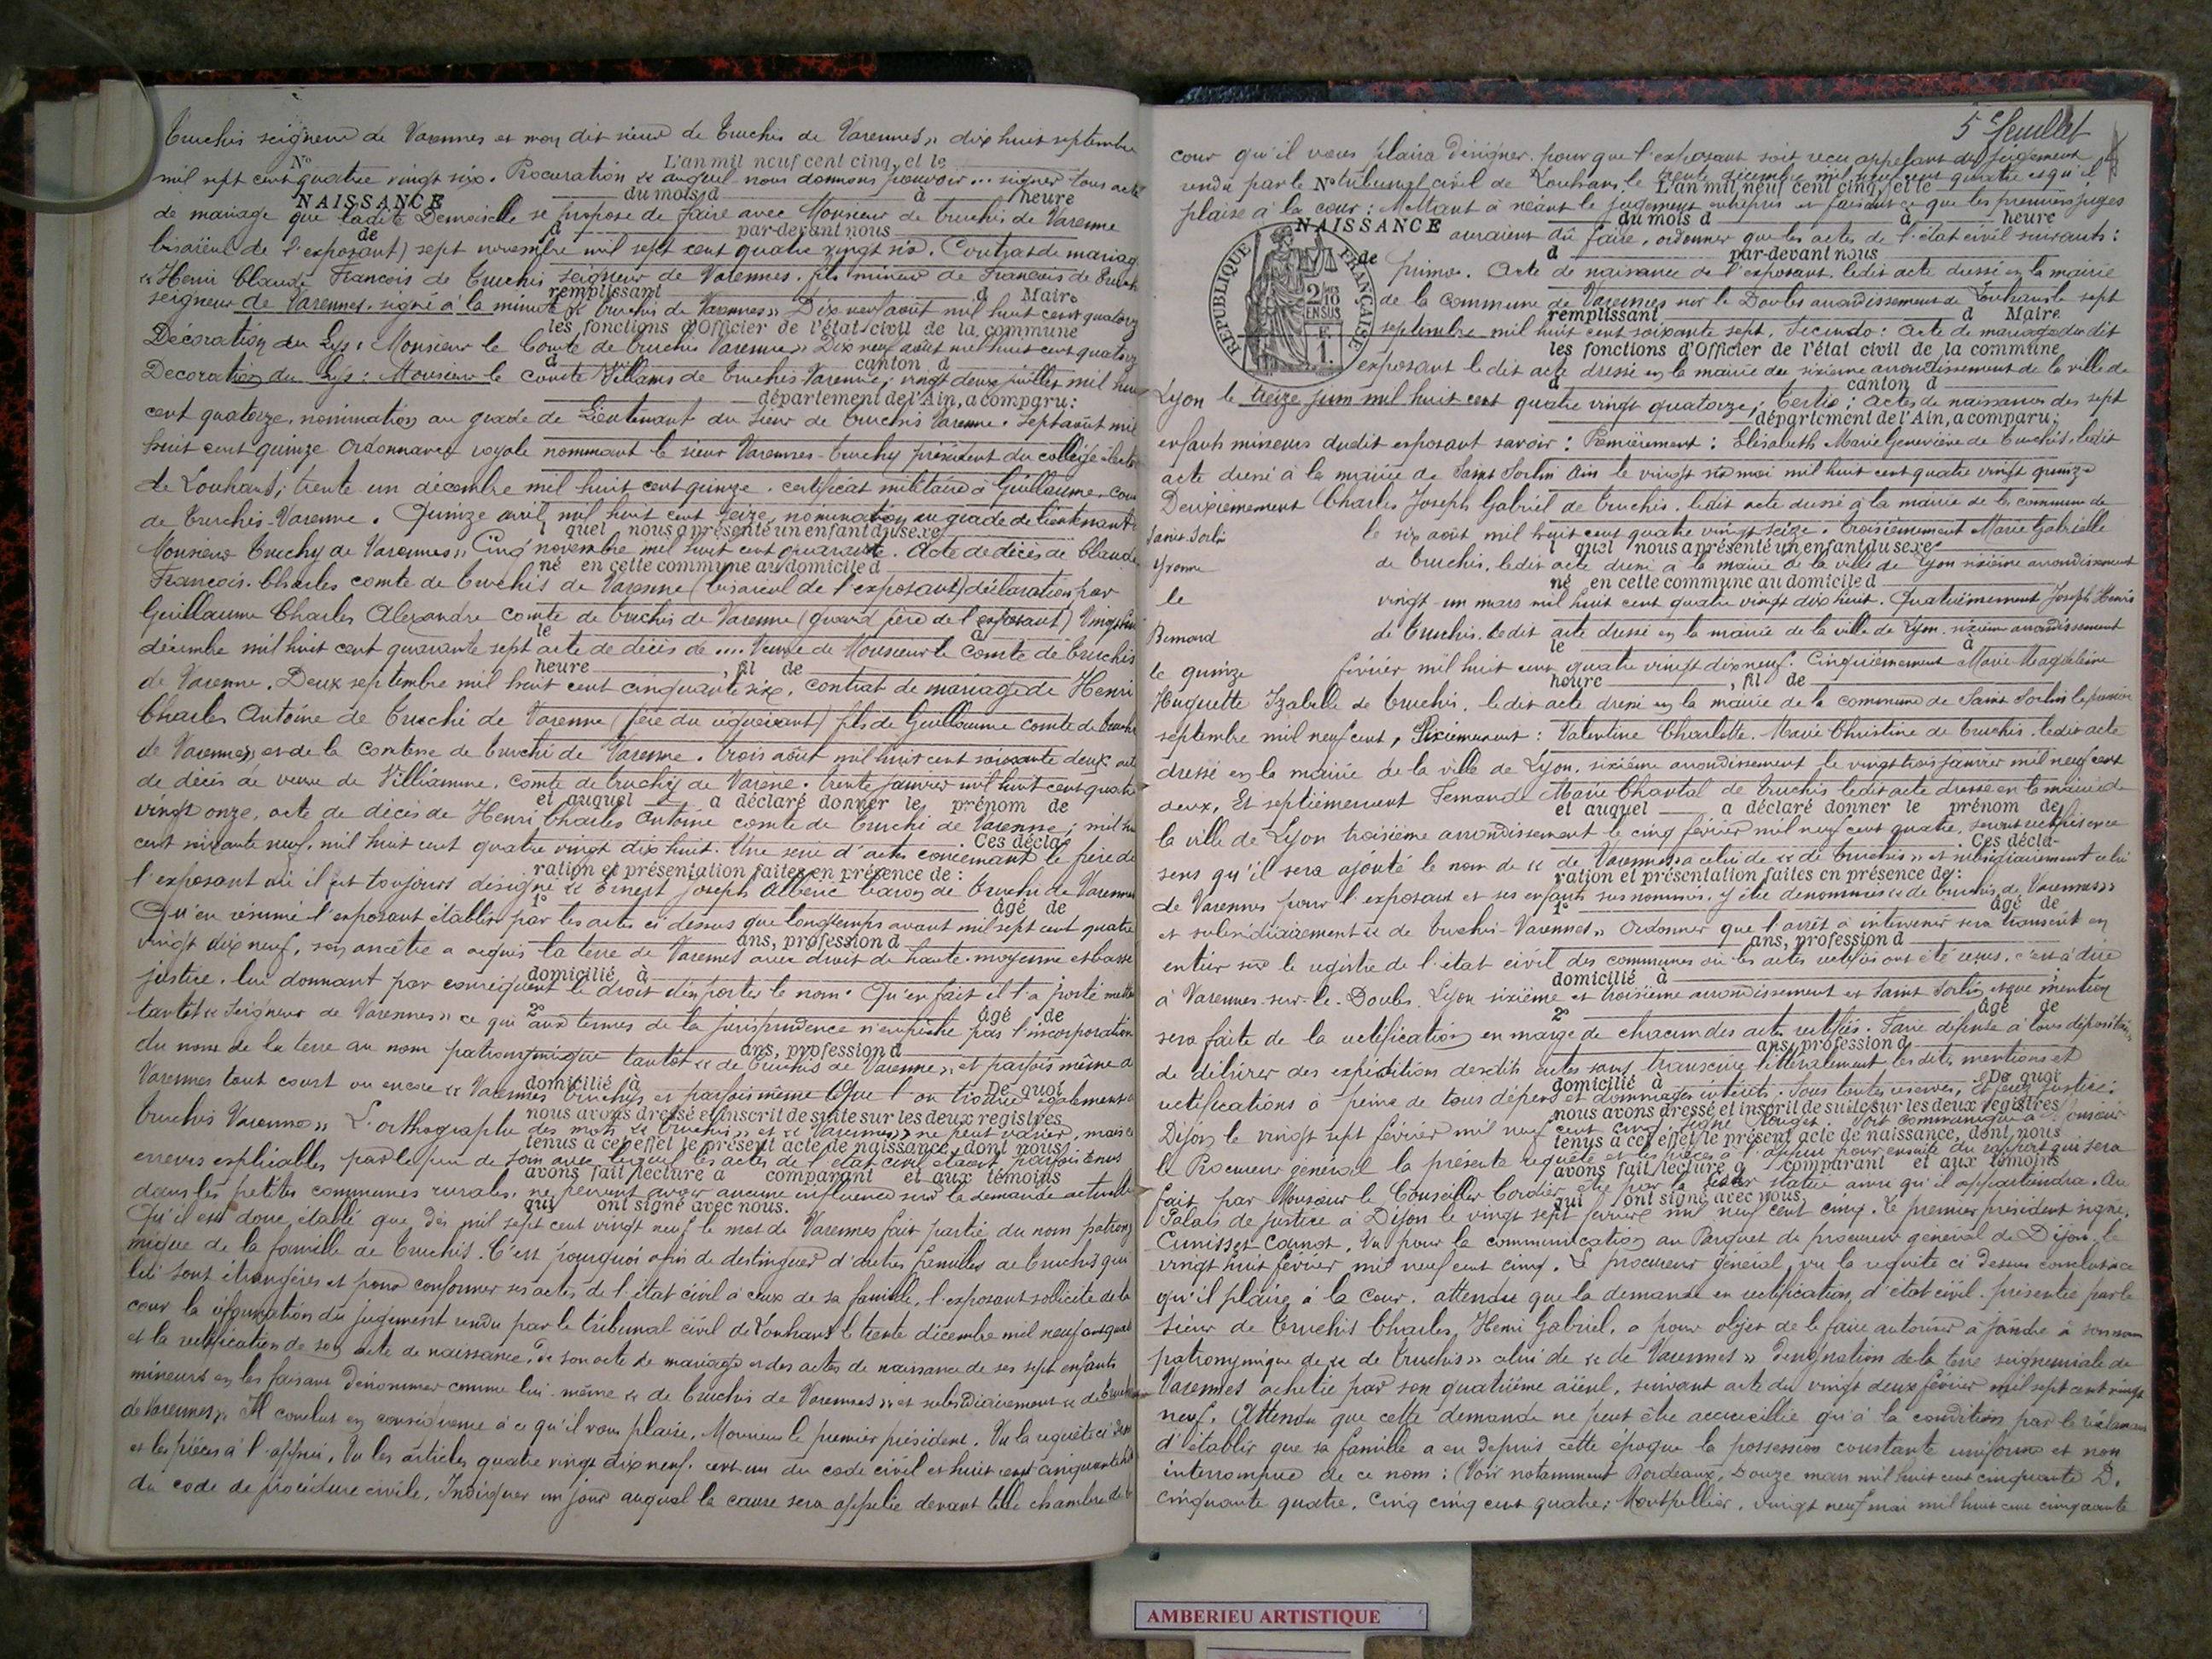 Truchis seigneur de Varennes et mon dit sieur de Truchis de Varennes" dix huit septembre
N° L'an mil neuf cent cinq, et le
mil sept cent quatre vingt six. Procuration "auquel nous donnons pouvoir... signer tous acte
du mois d à heure
NAISSANCE
de mariage que ladite Demoiselle se propose de faire avec Monsieur de Truchis de Varenne
de d par-devant nous
bisaïeul de l'exposant) sept novembre mil sept cent quatre vingt six. Contrat de mariag
"Henri Claude François de Truchis seigneur de Varennes. fils mineur de François de Truch
remplissant d Maire
seigneur de Varennes. signé à la minute "Truchis de Varennes" Dix neuf août mil huit cent quatorz
les fonctions d'Officier de l'état civil de la commune
Décoration du Lys: Monsieur le Comte de Truchis Varenne" Dix neuf août mil huit cent quatorz
d canton d
Decoration du Lys: Monsieur le comte Villams de Truchis Varenne; vingt deux juillet mil hui
département de l'Ain, a comparu:
cent quatorze, nomination au grade de Lieutenant du Sieur de Truchis Varenne. Sept août mil
huit cent quinze Ordonnance royale nommant le sieur Varennes-Truchy président du collège élect
de Louhans; trente un décembre mil huit cent quinze. certificat militaire à Guillaume, com
de Truchis-Varenne. Quinze avril mil huit cent seize, nomination au grade de lieutenant
quel nous a présenté un enfant du sexe
Monsieur Truchy de Varennes" Cinq novembre mil huit cent quarante. Acte de décès de Claude
né en cette commune au domicile d
François-Charles comte de Truchis de Varenne (bisaïeul de l'exposant) déclaration par
Guillaume Charles Alexandre Comte de Truchis de Varenne (grand père de l'exposant) Vingt hui
le à
décembre mil huit cent quarante sept acte de décès de .... Veuve de Monsieur le Comte de Truchis
heure , fil de
de Varenne. Deux septembre mil huit cent cinquante six, contrat de mariage de Henri
Charles Antoine de Truchi de Varenne (père du requérant) fils de Guillaume comte de Truch
de Varennes, et de la Comtesse de Truchi de Varenne. Trois août mil huit cent soixante deux act
de décès de veuve de Villiamme, Comte de Truchy de Varene. Trente janvier mil huit cent quatre
et auquel a déclaré donner le prénom de
vingt onze, acte de décès de Henri Charles Antoine comte de Truchi de Varenne; mil hu
Ces décla-
cent soixante neuf, mil huit cent quatre vingt dix huit. Une série d'actes concernant le frère de
ration et présentation faites en présence de:
l'exposant où il est toujours désigné "Ernest Joseph Albéric baron de Truchi de Varennes
1° âgé de
Qu'en résumé l'exposant établit par les actes ci dessus que longtemps avant mil sept cent quatre
ans, profession d
vingt dix neuf, son ancêtre a acquis la terre de Varennes avec droit de haute moyenne et basse
domicilié à
justice, lui donnant par conséquent le droit d'en porter le nom. Qu'en fait il l'a porté
2° âgé de
tantôt "Seigneur de Varennes" ce qui aux termes de la jurisprudence n'empêche pas l'incorporation
ans, profession d
du nom de la terre au nom patronymique tantôt "de Truchis de Varenne", et parfois même d
domicilié à De quoi
Varennes tout court ou encore "Varennes Truchy" et parfois même Que l'on trouve également
nous avons dressé et inscrit de suite sur les deux registres
Truchis Varenne" L'orthographe des mots "Truchis" et "Varennes" ne peut varier, mais c
tenus à cet effet le présent acte de naissance, dont nous
erreurs explicables par le peu de soin avec lequel les actes de l'état civil étaient parfois tenus
avons fait lecture a comparant et aux témoins
dans les petites communes rurales, ne peuvent avoir aucune influence sur la demande actuelle
qui ont signé avec nous.
Qu'il est donc établi que dès mil sept cent vingt neuf le mot de Varennes fait partie du nom patrony
mique de la famille de Truchis. C'est pourquoi afin de destinguer d'autres familles de Truchis qui
lui sont étrangères et pour conformer ses actes de l'état civil à ceux de sa famille, l'exposant sollicite de la
cour la réformation du jugement rendu par le tribunal civil de Louhans le trente décembre mil neuf cent quat
et la rectification de son acte de naissance, de son acte de mariage et des actes de naissance de ses sept enfants
mineurs en les faisant dénommer comme lui-même "de Truchis de Varennes" et subsidiairement "de Truchi
de Varennes". Il conclut en conséquence à ce qu'il vous plaise, Monsieur le premier président. Vu la requête ci dess
et les pièces à l'appui, Vu les articles quatre vingt dix neuf, cent un du code civil et huit cent cinquante
du code de procédure civile, Indiquer un jour auquel la cause sera appelée devant telle chambre de la
5e feuillet
cour qu'il vous plaira désigner pour que l'exposant soit reçu appelant du jugement
rendu par le tribunal civil de Louhans, le trente décembre mil neuf cent quatre et qu'il
N° L'an mil neuf cent cinq, et le
plaise à la cour: Mettant à néant le jugement entrepris et faisant ce que les premiers juges
du mois d à heure
NAISSANCE
auraient dû faire, ordonner que les actes de l'état civil suivants:
de d par-devant nous
RÉPUBLIQUE FRANÇAISE
2/10 EN SUS
F. 1.
primo. Acte de naissance de l'exposant, ledit acte dressé en la mairie
de la Commune de Varennes sur le Doubs arrondissement de Louhans le sept
remplissant d Maire
septembre mil huit cent soixante sept, Secundo: acte de mariage du dit
les fonctions d'Officier de l'état civil de la commune
exposant ledit acte dressé en la mairie du sixième arrondissement de la ville de
d canton d
Lyon le treize juin mil huit cent quatre vingt quatorze; Tertio: actes de naissance des sept
département de l'Ain, a comparu:
enfants mineurs dudit exposant savoir: Premièrement: Elisabeth Marie Geneviève de Truchis, ledit
acte dressé à la mairie de Saint Sorlin Ain le vingt six mai mil huit cent quatre vingt quinze
Deuxièmement Charles Joseph Gabriel de Truchis. ledit acte dressé à la mairie de la commune de
Saint Sorlin le six août mil huit cent quatre vingt seize. Troisièmement Marie Gabrielle
quel nous a présenté un enfant du sexe
Yvonne de Truchis, ledit acte dressé à la mairie de la ville de Lyon sixième arrondissement
né en cette commune au domicile d
le vingt-un mars mil huit cent quatre vingt dix huit. Quatrièmement Joseph Henri
Bernard de Truchis. ledit acte dressé en la mairie de la ville de Lyon, sixième arrondissement
le à
le quinze février mil huit cent quatre vingt dix neuf. Cinquièmement Marie Magdeleine
heure , fil de
Huguette Izabelle de Truchis, ledit acte dressé en la mairie de la commune de Saint Sorlin le premier
septembre mil neuf cent, Sixièmement: Valentine Charlotte Marie Christine de Truchis, ledit acte
dressé en la mairie de la ville de Lyon, sixième arrondissement le vingt trois janvier mil neuf cent
deux, Et septièmement Fernande Marie Chantal de Truchis ledit acte dressé en la mairie de
et auquel a déclaré donner le prénom de
la ville de Lyon troisième arrondissement le cinq février mil neuf cent quatre, seront rectifiés en ce
Ces décla-
sens qu'il sera ajouté le nom de "de Varennes" à celui de "de Truchis" et subsidiairement celui
ration et présentation faites en présence de:
de Varennes pour l'exposant et ses enfants susnommés, y être dénommés "de Truchis de Varennes"
1° âgé de
et subsidiairement "de Truchis-Varennes" Ordonner que l'arrêt à intervenir sera transcrit en
ans, profession d
entier sur le registre de l'état civil des communes où les actes rectifiés ont été reçus, c'est à dire
domicilié à
à Varennes-sur-le-Doubs, Lyon sixième et troisième arrondissement et Saint Sorlin et que mention
2° âgé de
sera faite de la rectification en marge de chacun des actes rectifiés. Faire défense à tous dépositaires
ans, profession d
de délivrer des expéditions desdits actes sans transcrire littéralement lesdites mentions et
domicilié à De quoi
rectifications à peine de tous dépens et dommages intérêts. Sous toutes réserves, Et ferez justice:
nous avons dressé et inscrit de suite sur les deux registres
Dijon le vingt sept février mil neuf cent cinq. Signé Rouget. Soit communiqué à Monsieur
tenus à cet effet le présent acte de naissance, dont nous
le Procureur général la présente requête et les pièces à l'appui pour ensuite du rapport qui sera
avons fait lecture a comparant et aux témoins
fait par Monsieur le Conseiller Cordier être par la cour statué ainsi qu'il appartiendra. Au
qui ont signé avec nous.
Palais de justice à Dijon le vingt sept février mil neuf cent cinq. Le premier président signé.
Cunisset Carnot. Vu pour la communication au Parquet du procureur général de Dijon le
vingt huit février mil neuf cent cinq. Le procureur général, vu la requête ci dessus conclut à ce
qu'il plaise à la Cour. attendu que la demande en rectification d'état civil présentée par le
sieur de Truchis Charles, Henri Gabriel, a pour objet de le faire autoriser à joindre à son nom
patronymique de "de Truchis" celui de "de Varennes" désignation de la terre seigneuriale de
Varennes achetée par son quatrième aïeul, suivant acte du vingt deux février mil sept cent vingt
neuf. Attendu que cette demande ne peut être accueillie qu'à la condition par le réclamant
d'établir que sa famille a eu depuis cette époque la possession constante uniforme et non
interrompue de ce nom: (Voir notamment Bordeaux, Douze mars mil huit cent cinquante D.
cinquante quatre, Cinq cinq cent quatre; Montpellier, vingt neuf mai mil huit cent cinquante
AMBERIEU ARTISTIQUE